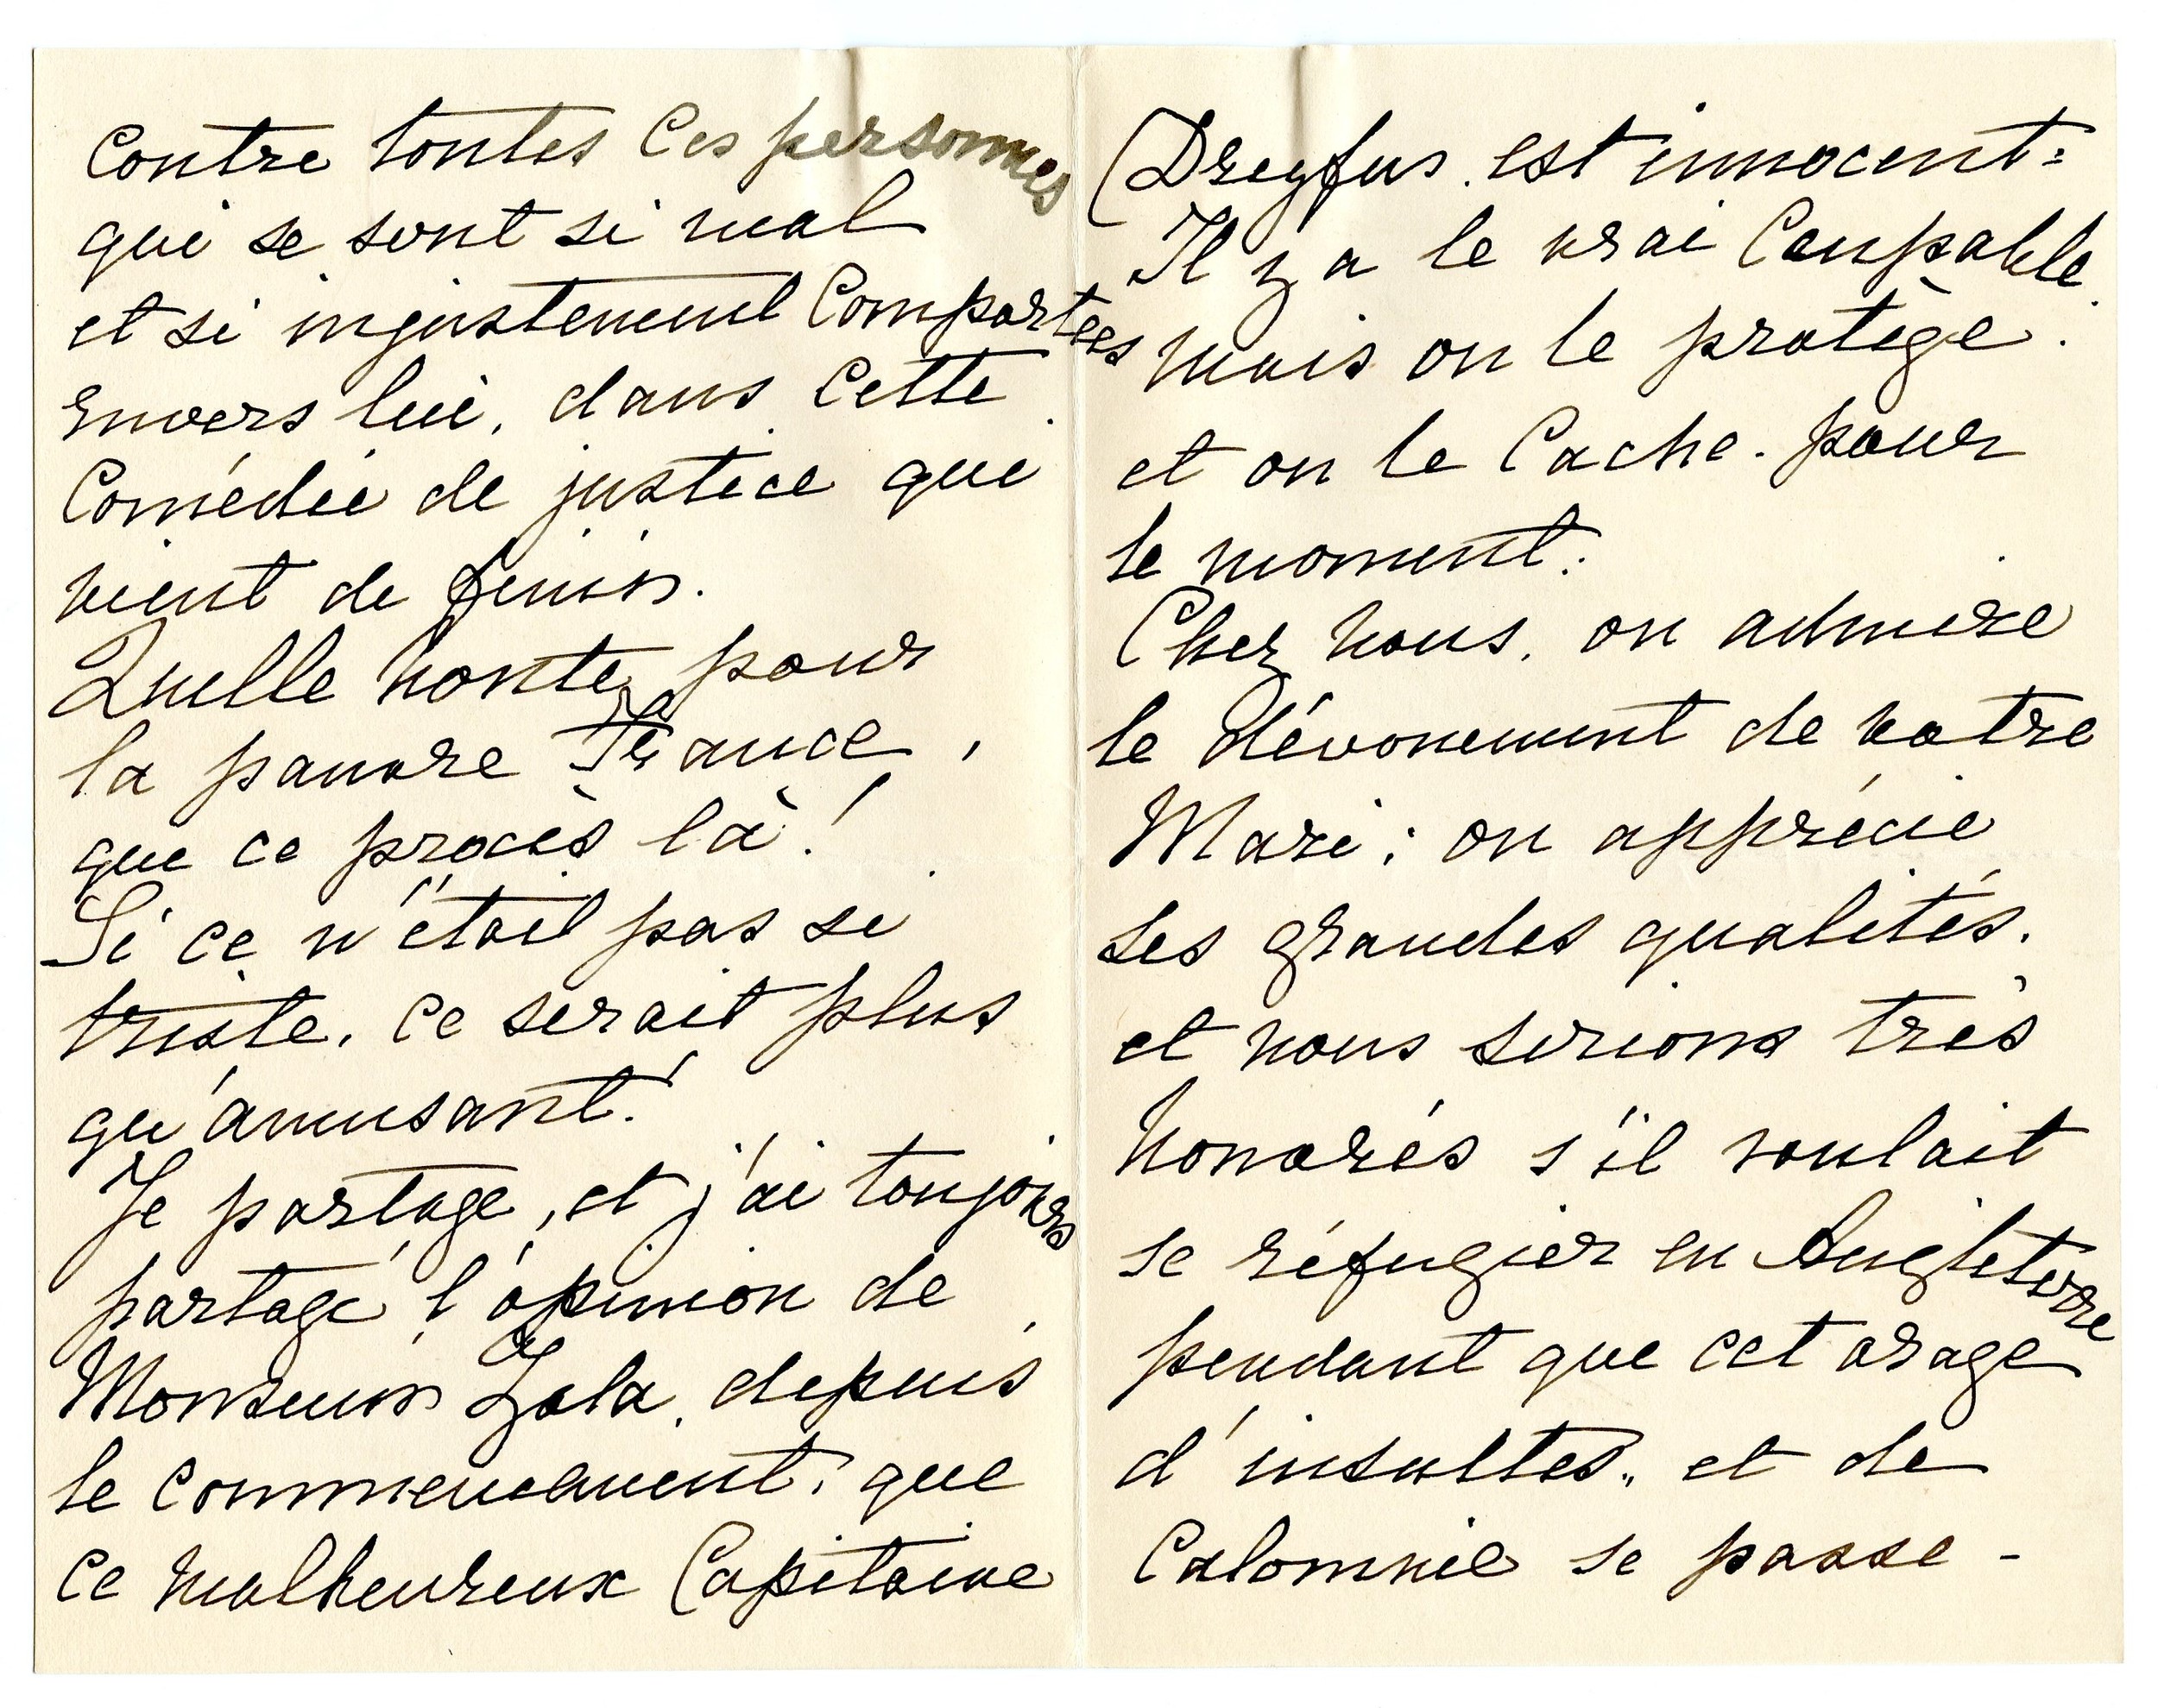 Contre toutes ces personnes
qui se sont si mal
et si injustement Comportees
envers lui, dans cette
Comédie de justice qui
vient de finir.
Quelle honte pour
la pauvre France,
que ce procès là!
Si ce n'était pas si
triste, ce serait plus
qu'amusant!
Je partage, et j'ai toujours
partagé l'opinion de
Monsieur Zola, depuis
le commencement, que
ce malheureux Capitaine
Dreyfus est innocent:
Il y a le vrai Coupable,
mais on le protège.
et on le Cache. pour
le moment.
Chez nous, on admire
le dévouement de votre
Mari; on apprécie
ses grandes qualités,
et nous serions très
honorés s'il voulait
se réfugier en Angleterre
pendant que cet orage
d'insultes, et de
Calomnie se passe -